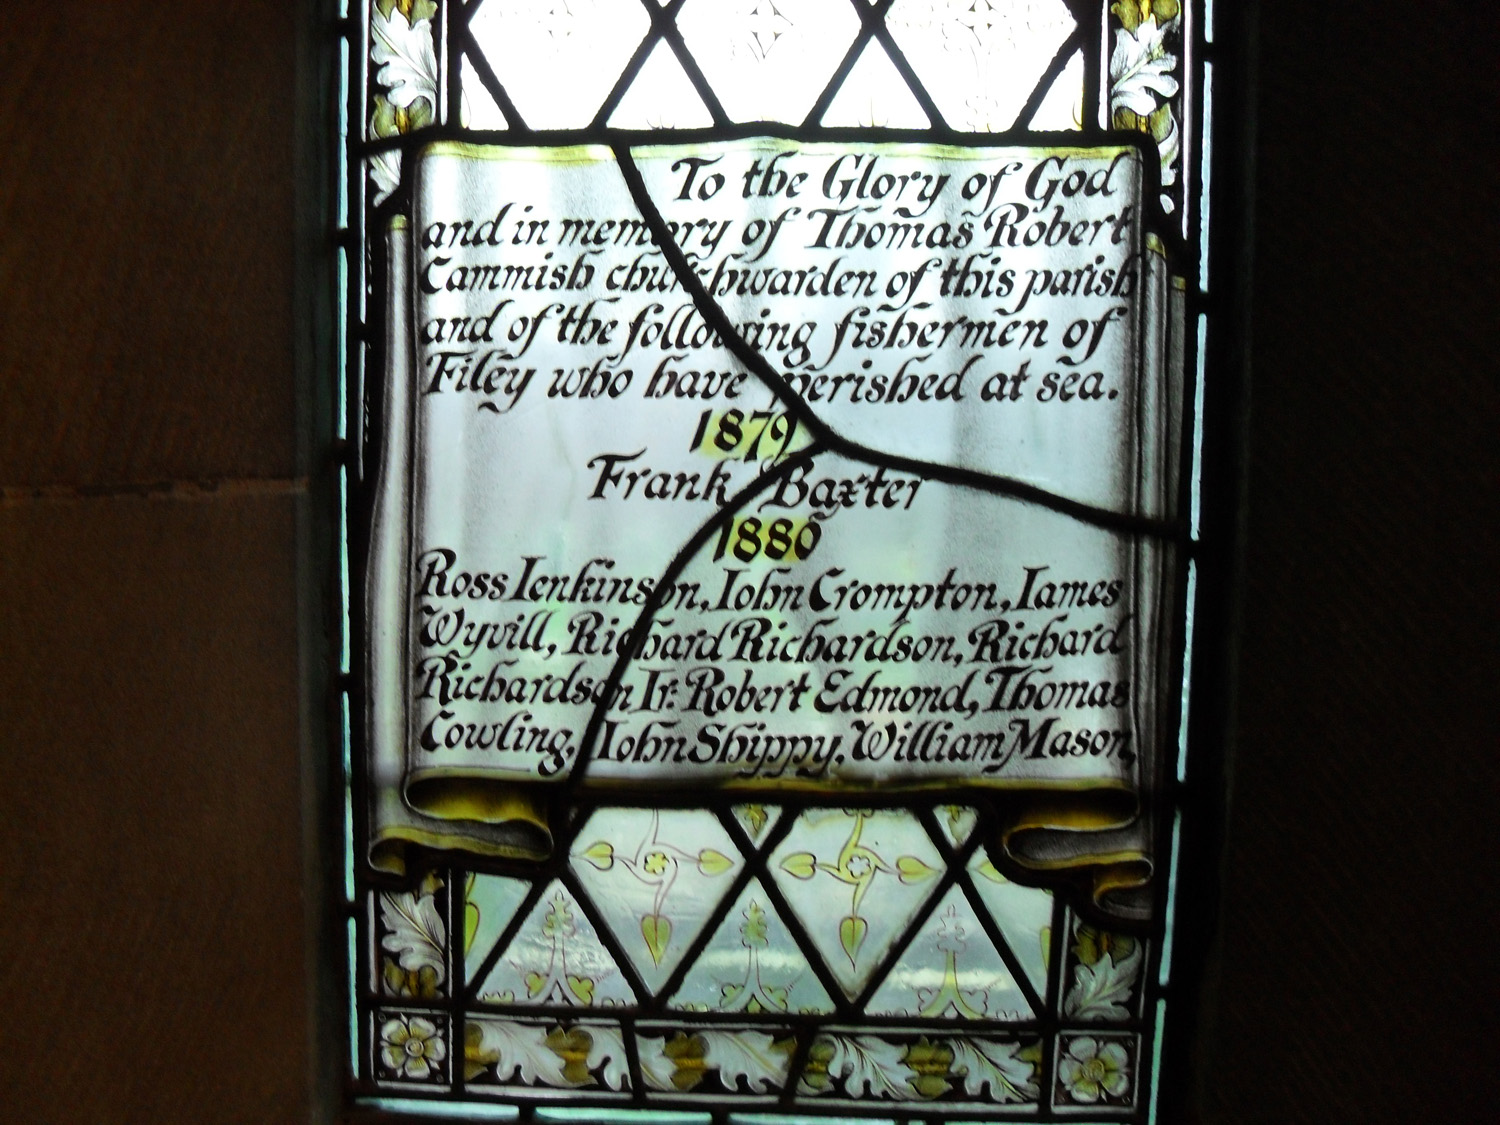 To the Glory of God
and in memory of Thomas Robert
Cammish churchwarden of this parish
and of the following fishermen of
Filey who have perished at sea.
1879
Frank Baxter
1880
Ross Ienkinson, Iohn Crompton, Iames
Wyvill, Richard Richardson, Richard
Richardson Ir: Robert Edmond, Thomas
Cowling, Iohn Shippy, William Mason,